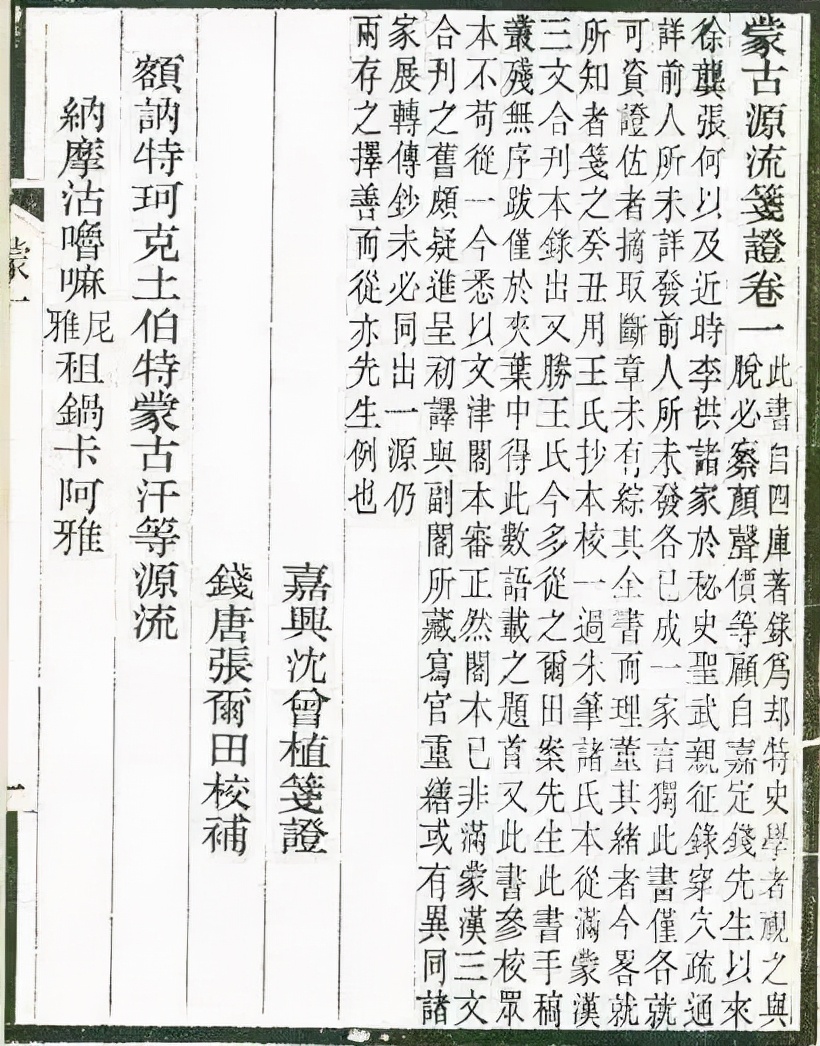 蒙古源流箋證卷一
此書自四庫著錄爲邦特史學者視之與
脫必察顏聲價等顧自嘉定錢先生以來
徐龔張何以及近時李洪諸家於秘史聖武親征錄穿穴疏通
詳前人所未詳發前人所未發各已成一家言獨此書僅各就
可資證佐者摘取斷章未有綜其全書而理董其緒者今畧就
所知者箋之癸丑用王氏抄本校一過朱筆諸氏本從滿蒙漢
三文合刊本錄出又勝王氏今多從之爾田案先生此書手稿
叢殘無序跋僅於夾葉中得此數語載之題首又此書參校眾
本不苟從一今悉以文津閣本審正然閣本已非滿蒙漢三文
合刊之舊頗疑進呈初譯與副閣所藏寫官重繕或有異同諸
家展轉傳鈔未必同出一源仍
兩存之擇善而從亦先生例也
嘉興沈曾植箋證
錢唐張爾田校補
額訥特珂克土伯特蒙古汗等源流
納摩沽嚕嘛尼雅租鍋卡阿雅
蒙一
一